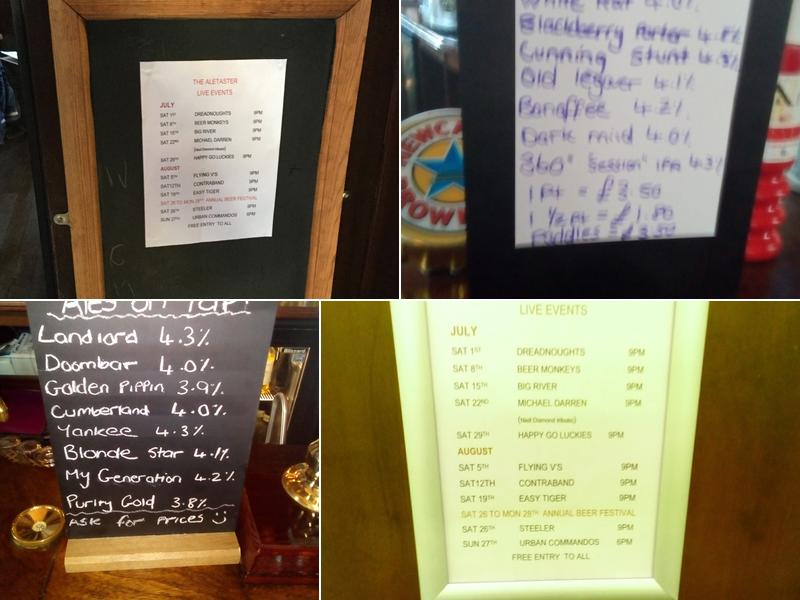 THE ALETASTER
LIVE EVENTS
JULY
SAT 1ST DREADNOUGHTS 9PM
SAT 8TH BEER MONKEYS 9PM
SAT 15TH BIG RIVER 9PM
SAT 22ND MICHAEL DARREN 9PM
(Neil Diamond tribute)
SAT 29TH HAPPY GO LUCKIES 9PM
AUGUST
SAT 5TH FLYING V'S 9PM
SAT12TH CONTRABAND 9PM
SAT 19TH EASY TIGER 9PM
SAT 26 TO MON 28TH ANNUAL BEER FESTIVAL
SAT 26TH STEELER 9PM
SUN 27TH URBAN COMMANDOS 6PM
FREE ENTRY TO ALL
White Rat 4.0%
Blackberry Porter
Cunning Stunt 4.3%
Old leguer 4.1%
Banoffee 4.2%
Dark mild 4.0%
360° "Session" IPA 4.3%
1 Pt = £3.50
1 1/2 pt = £1.80
Paddles = £3.50
NEWCA
BROWN
Ales on Tap!
Landlord 4.3%
Doombar 4.0%
Golden Pippin 3.9%
Cumberland 4.0%
Yankee 4.3%
Blonde Star 4.1%
My Generation 4.2%
Purity Gold 3.8%
ASK for prices
LIVE EVENTS
JULY
SAT 1ST DREADNOUGHTS 9PM
SAT 8TH BEER MONKEYS 9PM
SAT 15TH BIG RIVER 9PM
SAT 22ND MICHAEL DARREN 9PM
(Neil Diamond tribute)
SAT 29TH HAPPY GO LUCKIES 9PM
AUGUST
SAT 5TH FLYING V'S 9PM
SAT12TH CONTRABAND 9PM
SAT 19TH EASY TIGER 9PM
SAT 26 TO MON 28TH ANNUAL BEER FESTIVAL
SAT 26TH STEELER 9PM
SUN 27TH URBAN COMMANDOS 6PM
FREE ENTRY TO ALL